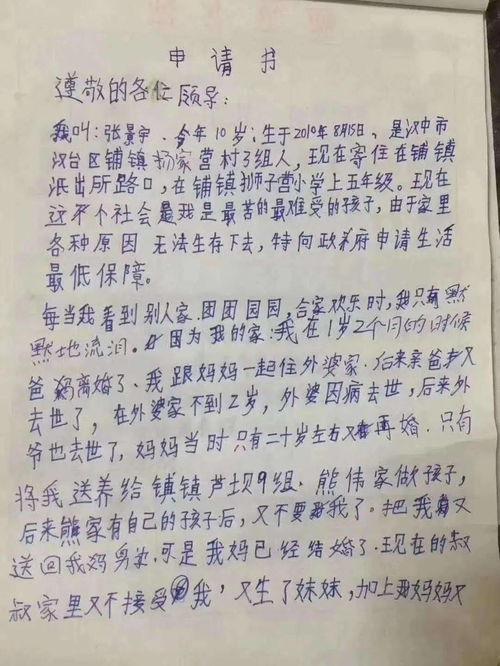 申请书
遵敬的各位顾导:
我叫:张景宇、今年10岁;生于2010年8月15日、是汉中市
汉台区铺镇杨家营村了组人,现在寄住在铺镇
派出所路口,在铺镇狮子营小学上五年级。现在
这个社会是我是最苦的最难受的孩子,由于家里
各种原因 无法生存下去,特向政府申请生活
最低保障。
每当我看到别人家.团团园园,合家欢乐时,我只有默
默地流泪。因为我的家:我在1岁2个月的时候
爸妈离婚了、我跟妈妈一起住外婆家.后来亲爸又
去世了,在外婆家不到2岁,外婆因病去世,后来外
爷也去世了,妈妈当时只有二十岁左右又再婚.只有
将我送养给铺镇芦坝9组.熊伟家做孩子,
后来熊家有自己的孩子后,又不要我了。把我又
送回我妈身边.可是我妈已经结婚了.现在的叔
叔家里又不接受我,又生了妹妹,加上我妈妈又